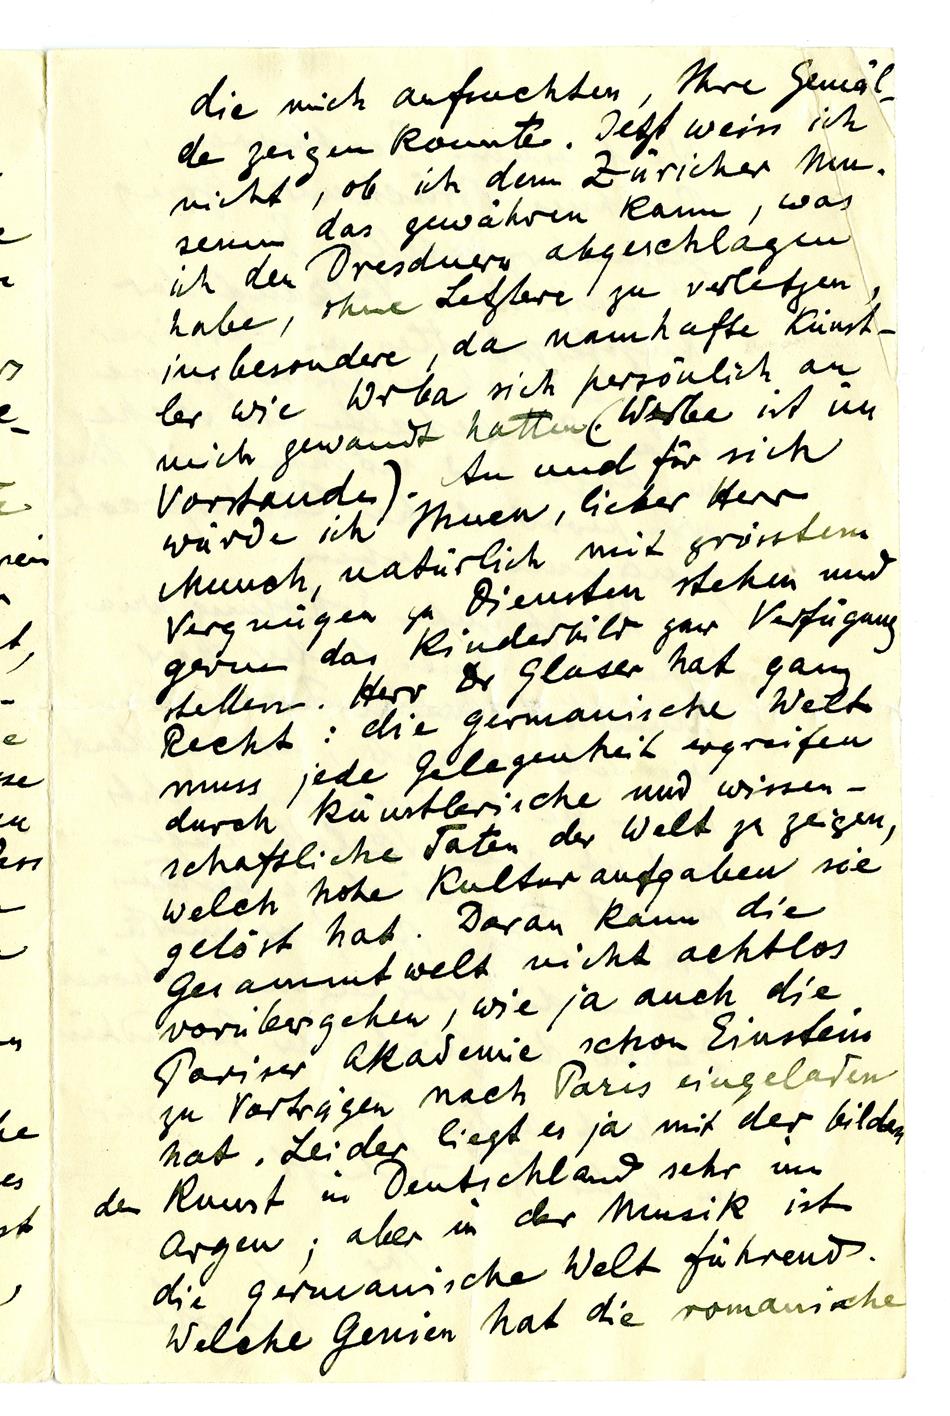 die mich aufsuchten, Ihre Gemäl-
de zeigen konnte. Jetzt weiss ich
nicht, ob ich dem Züricher Mu-
seum das gewähren kann, was
ich den Dresdnern abgeschlagen
habe, ohne Letztere zu verletzen,
insbesondere, da namhafte Künst-
ler wie Wrba sich persönlich an
mich gewandt hatten (Wrba ist im
Vorstande). An und für sich
würde ich Ihnen, lieber Herr
Munch, natürlich mit grösstem
Vergnügen zu Diensten stehen und
gerne das Kinderbild zur Verfügung
stellen. Herr Dr Glaser hat ganz
Recht: die germanische Welt
muss jede Gelegenheit ergreifen
durch künstlerische und wissen-
schaftliche Taten der Welt zu zeigen,
welch hohe Kulturaufgaben sie
gelöst hat. Daran kann die
Gesammtwelt nicht achtlos
vorübergehen, wie ja auch die
Pariser Akademie schon Einstein
zu Vorträgen nach Paris eingeladen
hat. Leider liegt es ja mit der bilden
den Kunst in Deutschland sehr im
Argen; aber in der Musik ist
die germanische Welt führend.
Welche Genien hat die romanische